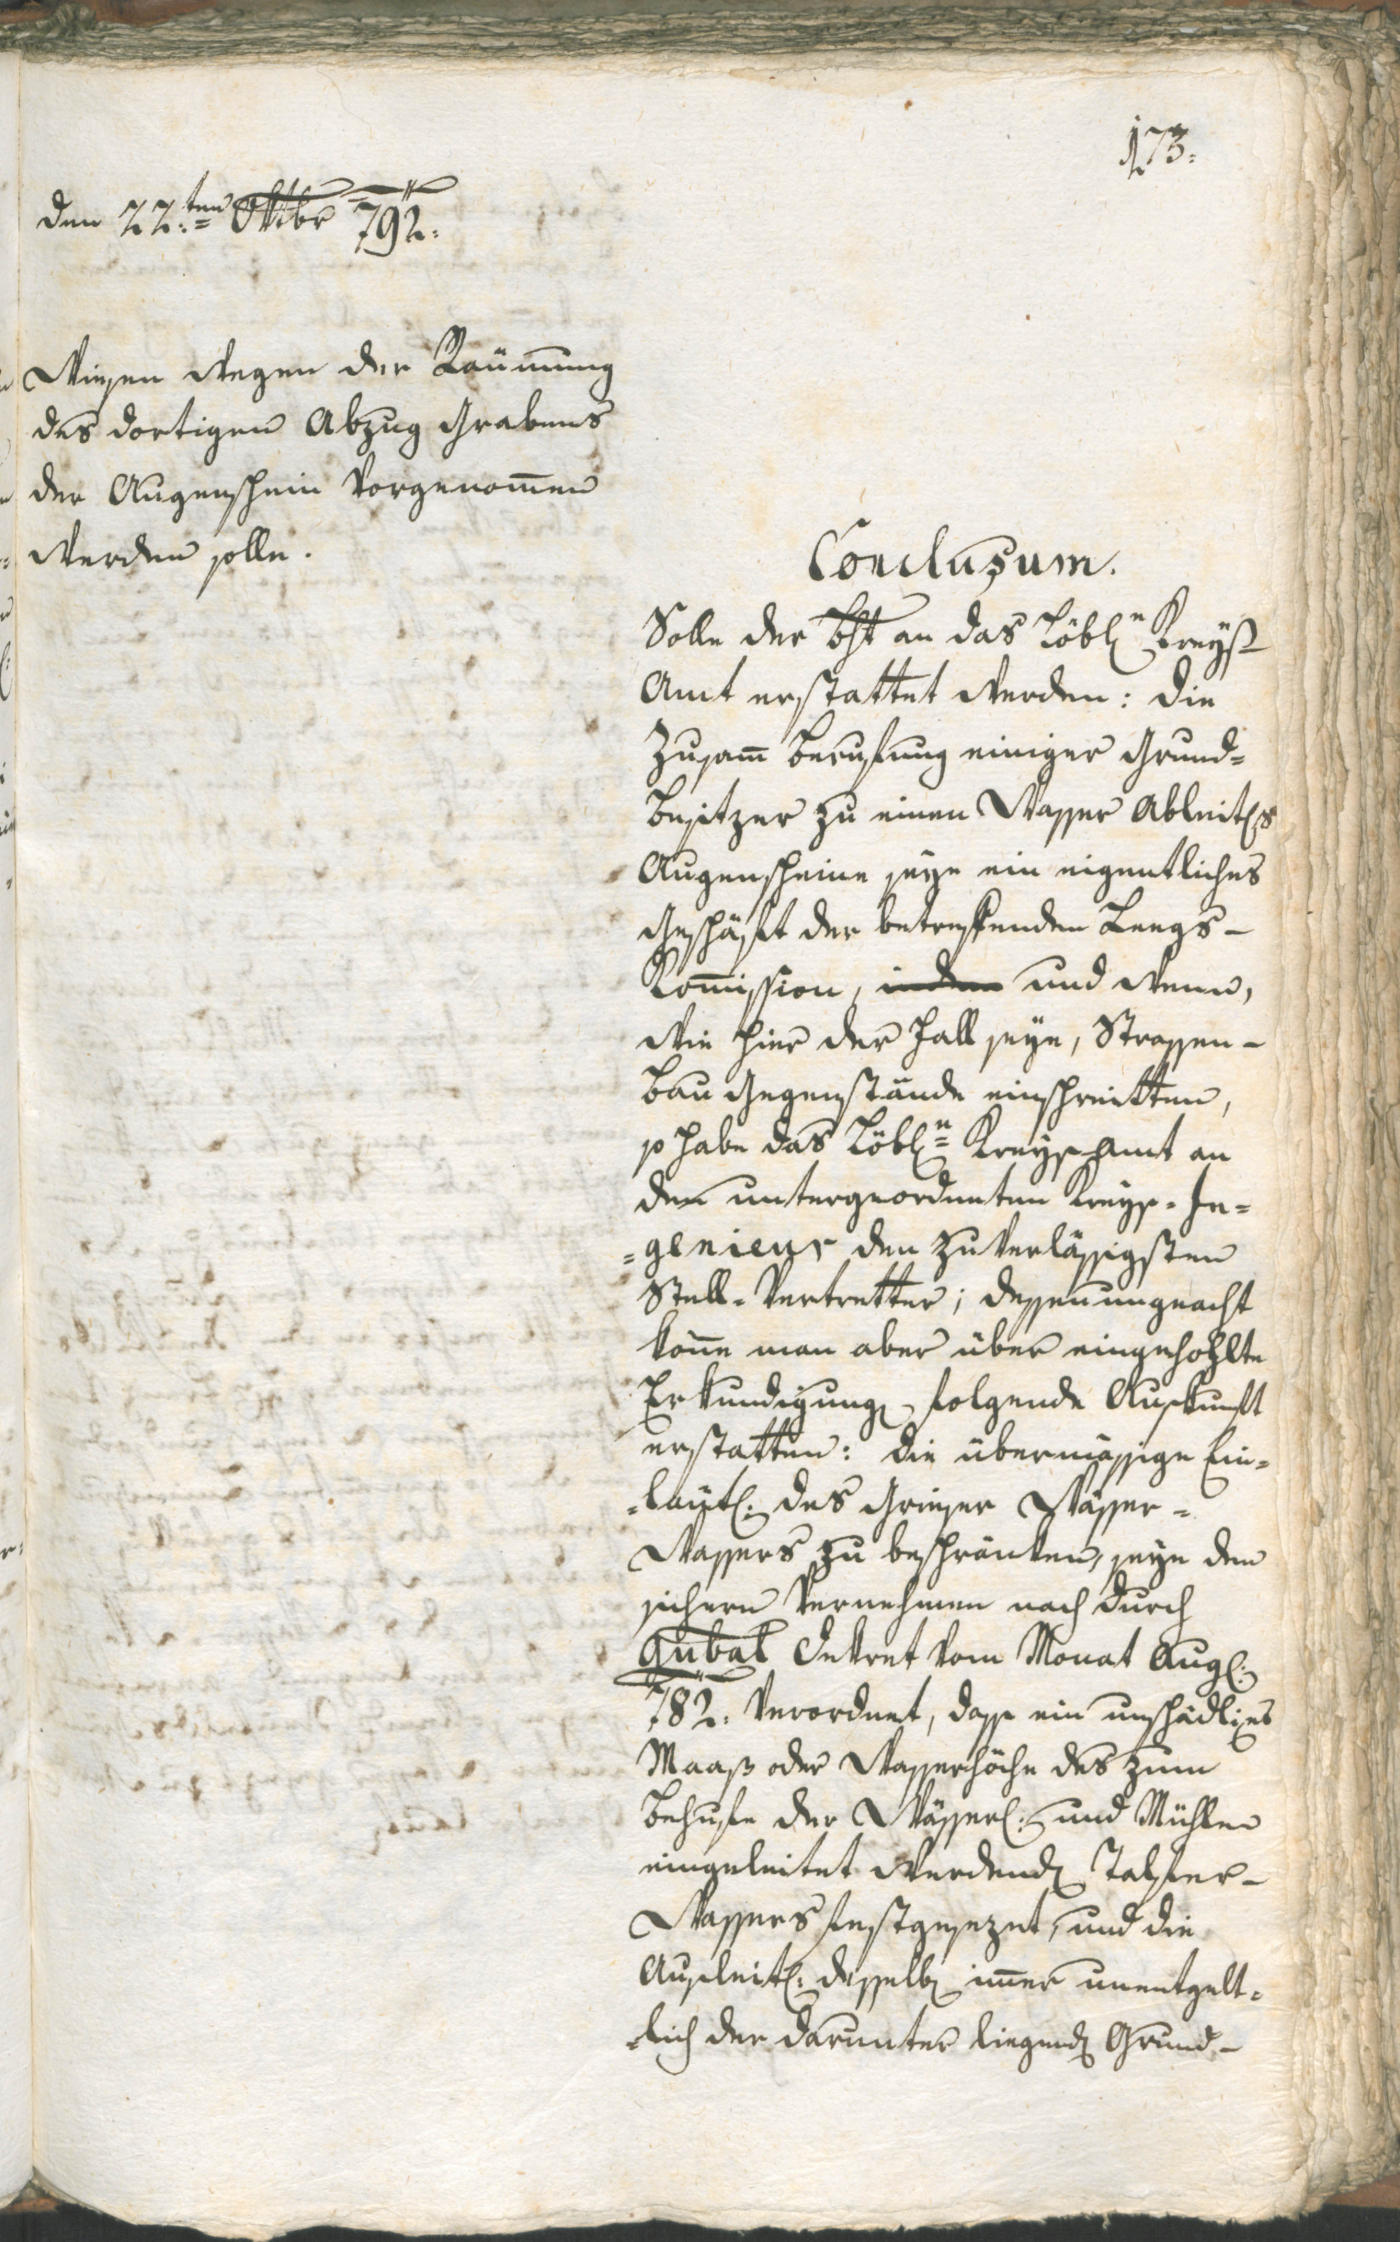 173.
den 22:ten Oktbr 792.
Wiesen wegen der Räum̅ung
des dortigen Abzug Grabens
der Augenschein vorgenom̅en
werden solle.
Conclusum.
Solle der Bht an das Löbl. Kreyß
Amt erstattet werden: die
Zusam̅ Berufung einiger Grund-
besitzer zu einen Wasser Ableit.s
Augenscheine seye ein eigentliches
Geschäft der betreffenden Leegs-
Kom̅ission, und wenn,
wie hier der Fall seye, Strassen-
bau Gegenstände einschreitten,
so habe das Löbl.e Kreysamt an
den untergeordneten Kreys-In-
=genieur den zuverlässigsten
Stell-Vertretter; dessen ungeacht
kön̅e man aber über eingehohlte
Erkundigung folgende Auskunft
erstatten: die übermässige Ein-
=laut. des Grieser Wässer-
Wassers zu beschränken, seye dem
sichern Vernehmen nach durch
Gubal Dekret vom Monat Aug.
782. verordnet, dass ein unschädliches
Maaß oder Wasserhöhe des zum
Behufe der Wässer. und Mühlen
eingeleitet werdend. Talfer-
Wassers festgesezet, und die
Ausleit. desselb. im̅er unentgelt-
=lich der darunter liegend. Grund-